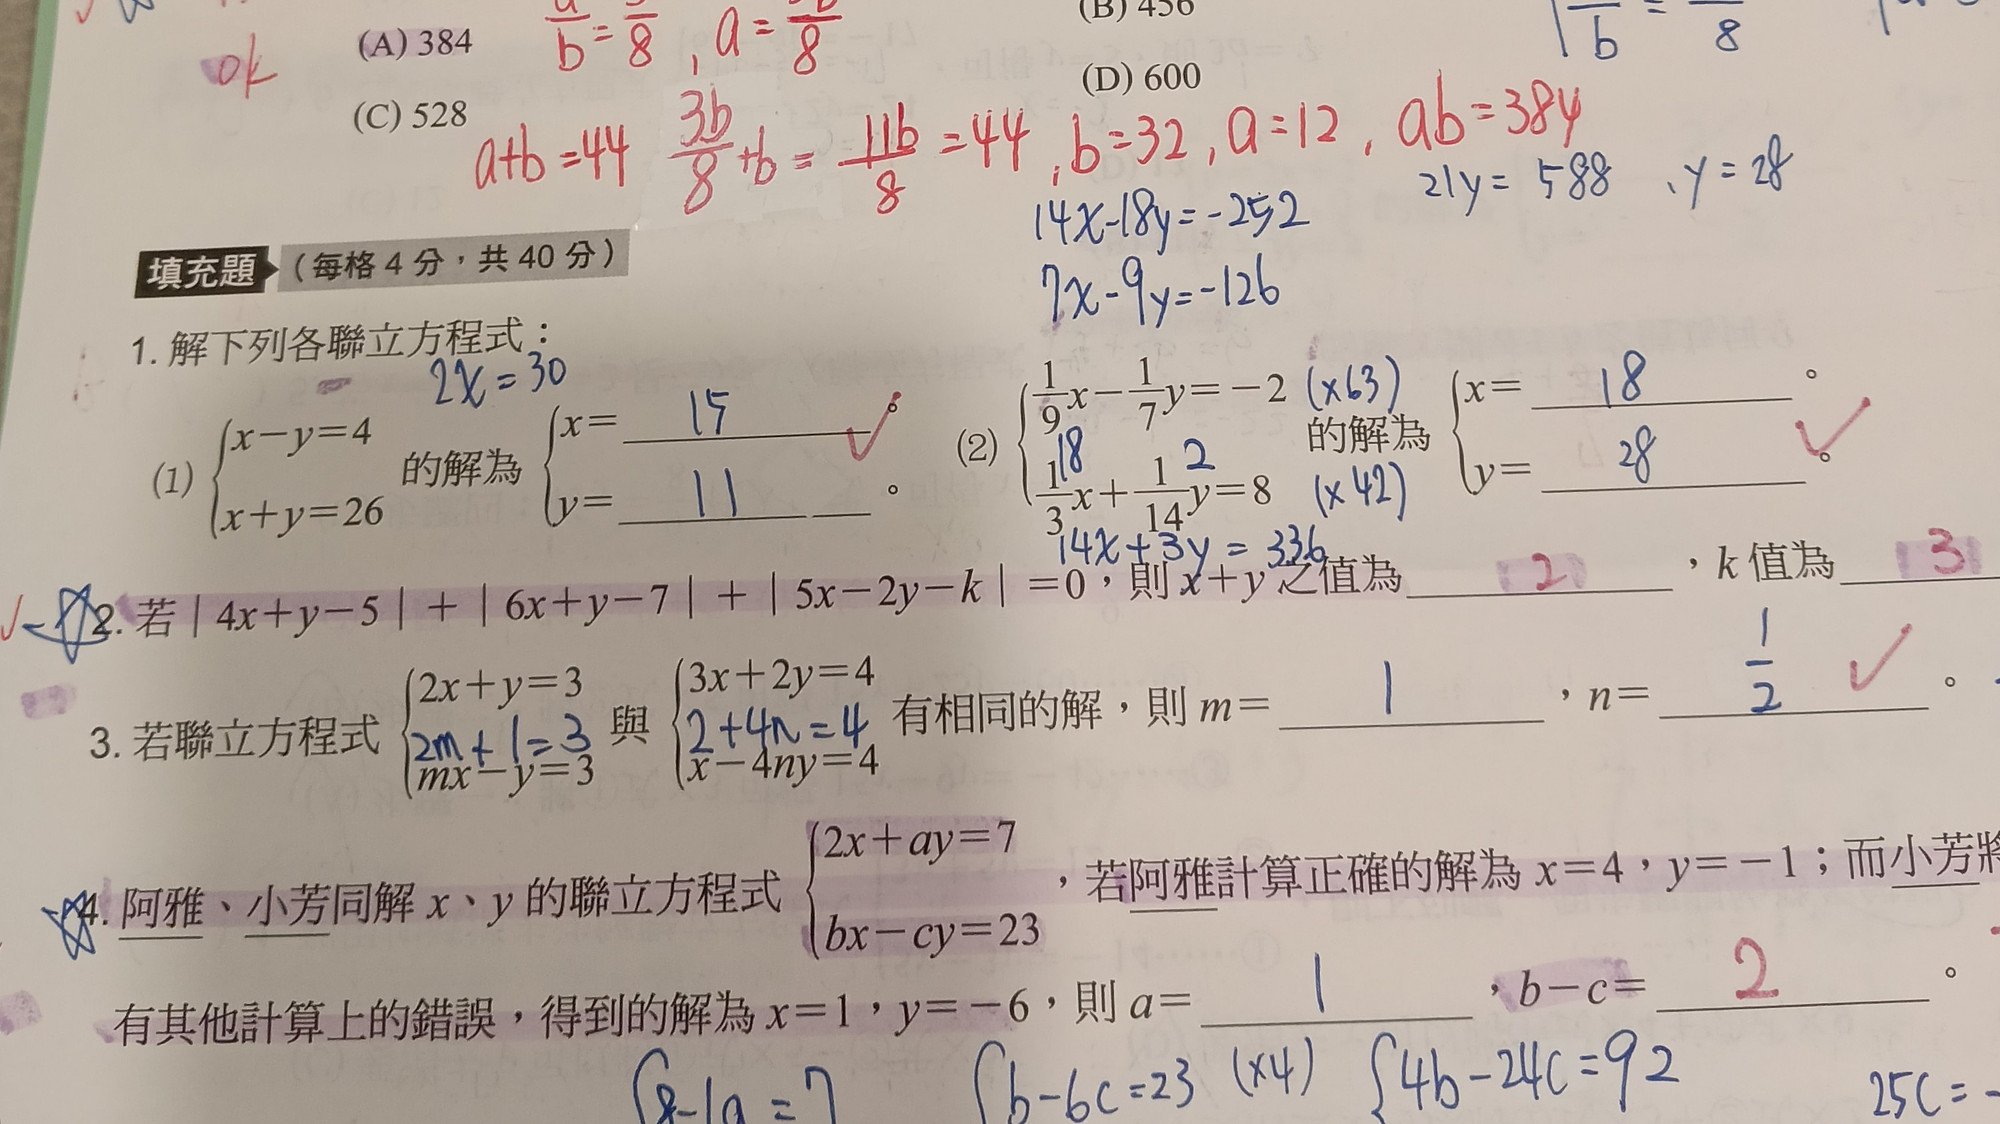 (A) 384
a/b = /8 , a = /8
(B) 456
b = 8
ok
(C) 528
(D) 600
a+b=44 3b/8+b = 11b/8 = 44 , b=32 , a=12 , ab=384
21y = 588 , y = 28
14x-18y=-252
7x-9y=-126
填充題 (每格 4 分,共 40 分)
1. 解下列各聯立方程式:
2x=30
(1) { x-y=4 x+y=26 的解為 { x= 15 。 y= 11 。
(2) { 1/9x-1/7y=-2 (x63) 1/3x+1/14y=8 (x42) 的解為 { x= 18 。 y= 28 。
18 2
14x+3y = 336
2. 若|4x+y-5|+|6x+y-7|+|5x-2y-k|=0,則 x+y 之值為 2 ,k 值為 3
3. 若聯立方程式 { 2x+y=3 mx-y=3 與 { 3x+2y=4 x-4ny=4 有相同的解,則 m= 1 ,n= 1/2 。
2m+1=3 2+4n=4
4. 阿雅、小芳同解 x、y 的聯立方程式 { 2x+ay=7 bx-cy=23 ,若阿雅計算正確的解為 x=4,y=-1;而小芳將
有其他計算上的錯誤,得到的解為 x=1,y=-6,則 a= 1 ,b-c= 2 。
{ 8-1a=7 { b-6c=23 (x4) { 4b-24c=92 25c=-